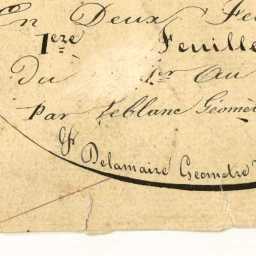 En Deux Fe
1ere Feuille
Du 1er Au
Par Leblanc Géomet
Delamaire Geometre